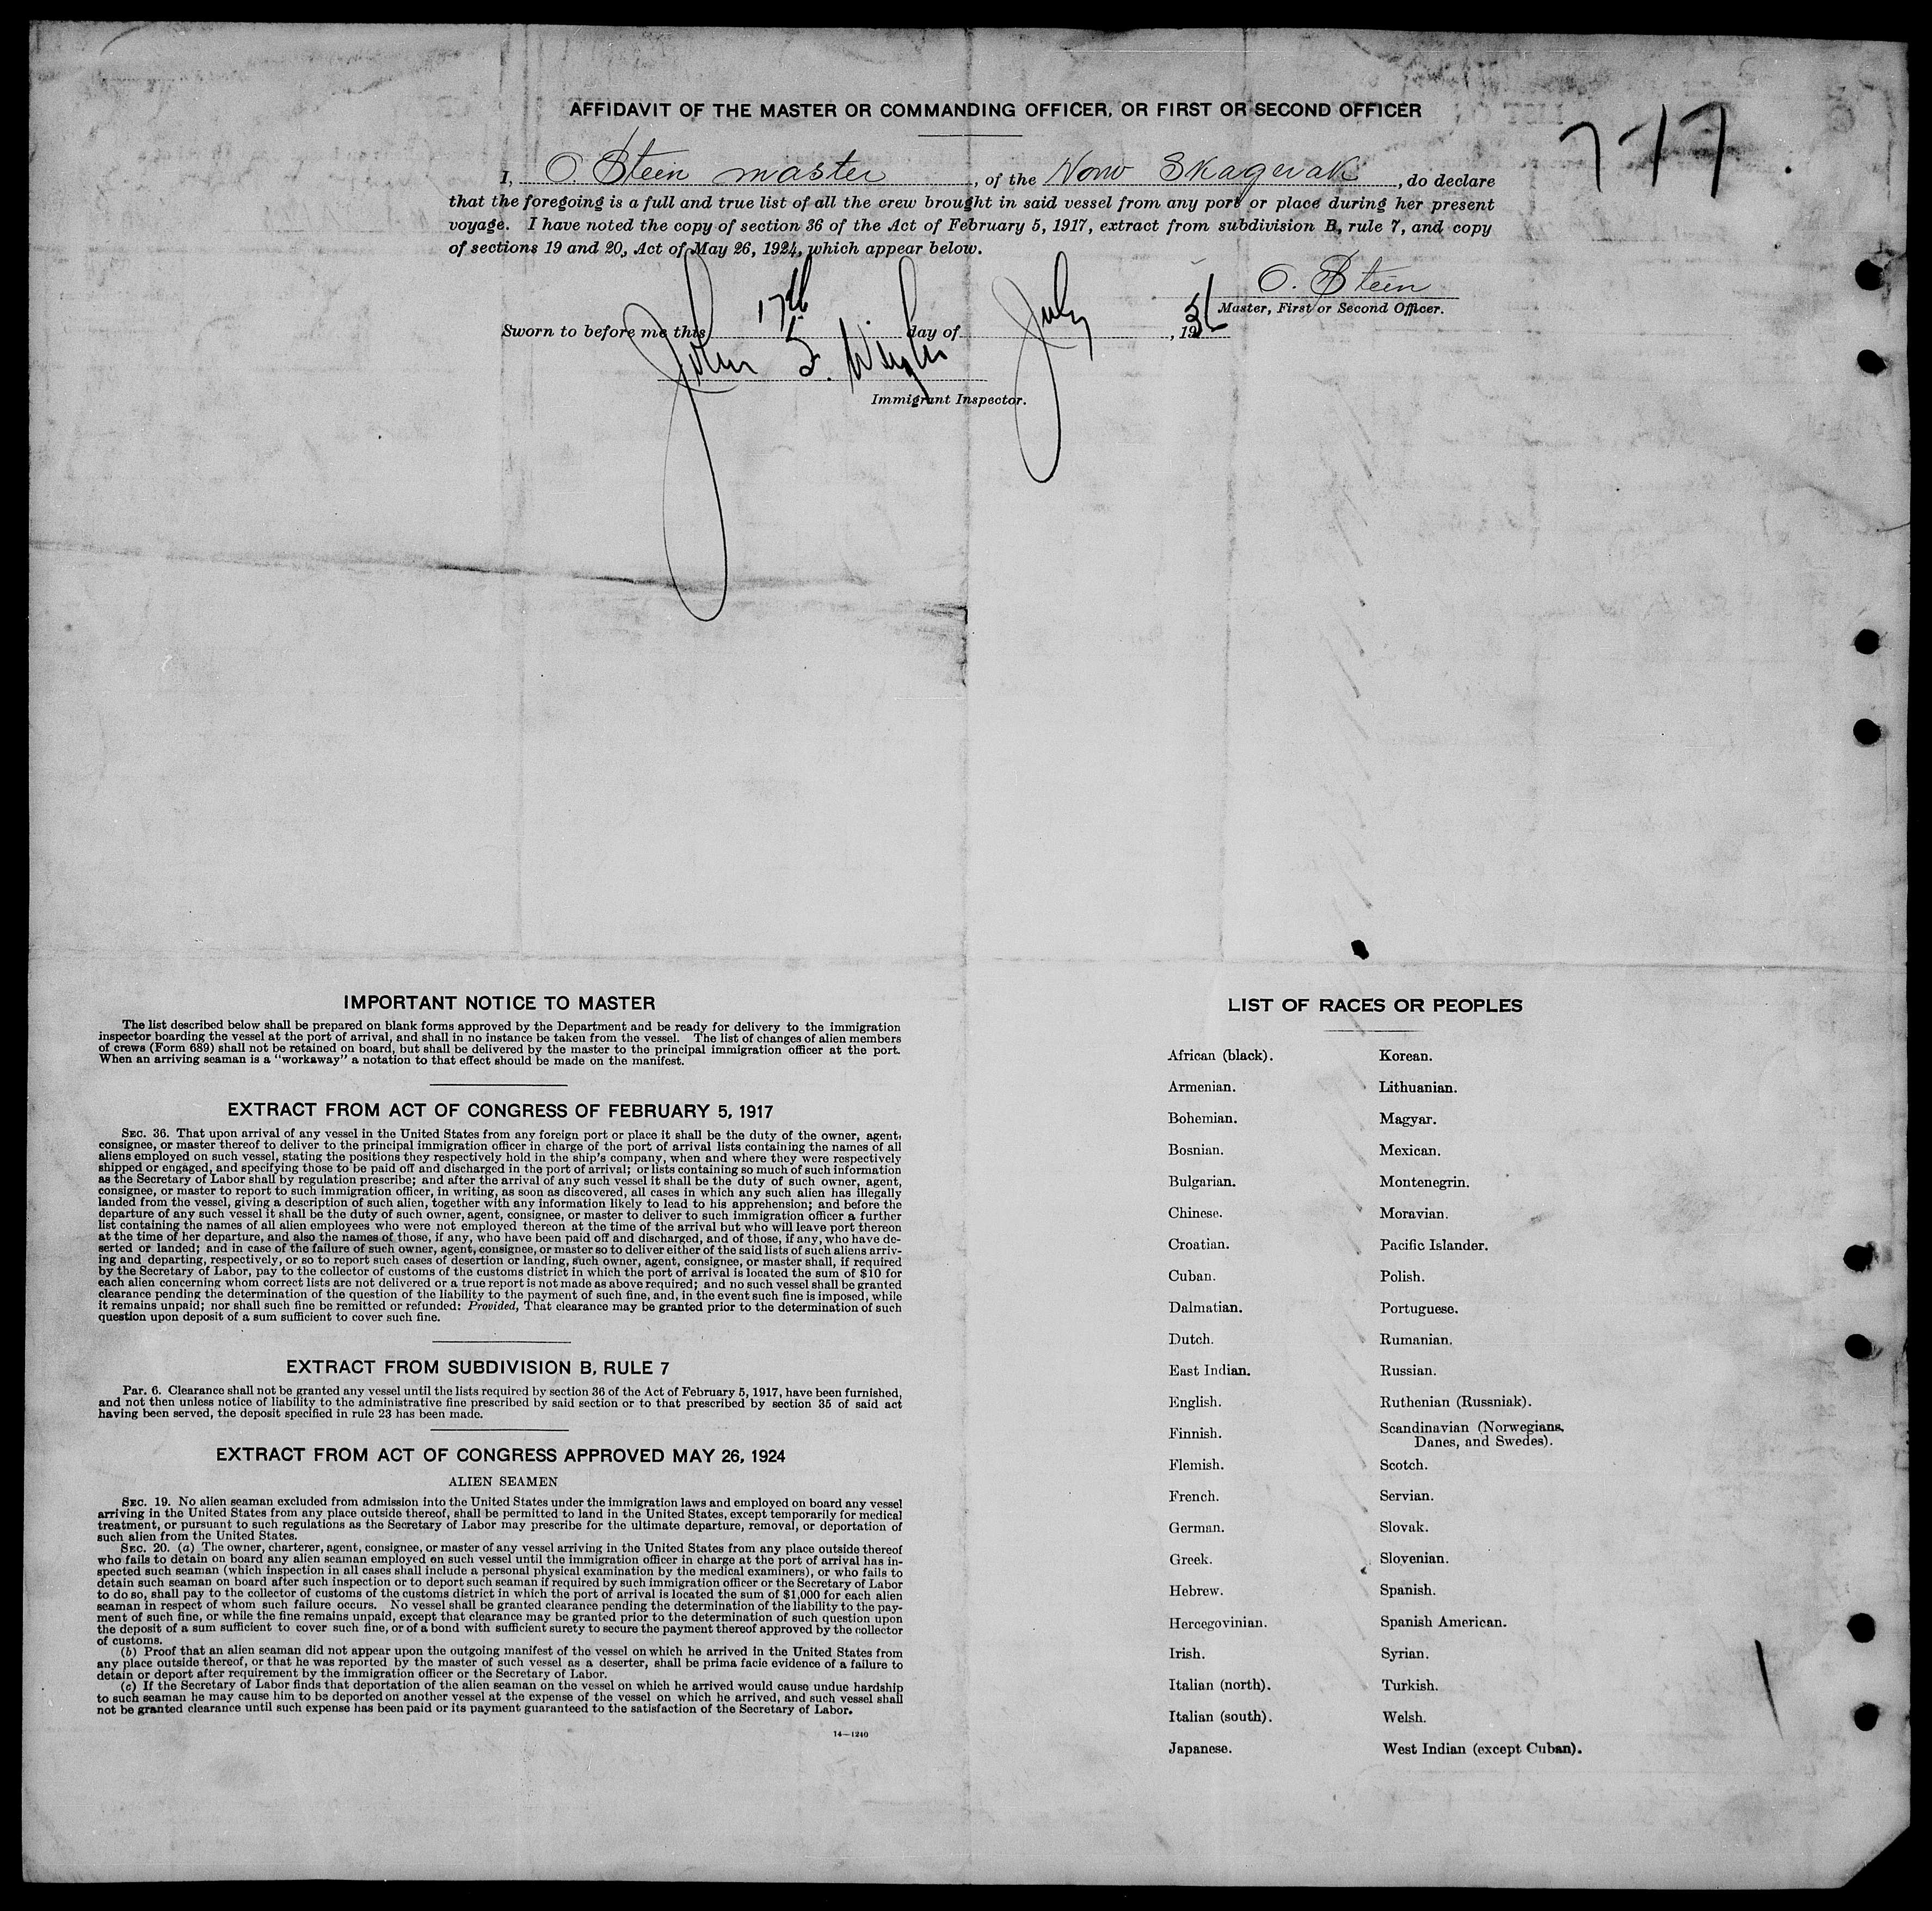 AFFIDAVIT OF THE MASTER OR COMMANDING OFFICER, OR FIRST OR SECOND OFFICER
7-17
I, O. Stein master, of the Norw Skagerak, do declare
that the foregoing is a full and true list of all the crew brought in said vessel from any port or place during her present
voyage. I have noted the copy of section 36 of the Act of February 5, 1917, extract from subdivision B, rule 7, and copy
of sections 19 and 20, Act of May 26, 1924, which appear below.
O. Stein
Master, First or Second Officer.
Sworn to before me this 17th day of July, 19
John
Immigrant Inspector.
IMPORTANT NOTICE TO MASTER
The list described below shall be prepared on blank forms approved by the Department and be ready for delivery to the immigration
inspector boarding the vessel at the port of arrival, and shall in no instance be taken from the vessel. The list of changes of alien members
of crews (Form 689) shall not be retained on board, but shall be delivered by the master to the principal immigration officer at the port.
When an arriving seaman is a "workaway" a notation to that effect should be made on the manifest.
EXTRACT FROM ACT OF CONGRESS OF FEBRUARY 5, 1917
SEC. 36. That upon arrival of any vessel in the United States from any foreign port or place it shall be the duty of the owner, agent,
consignee, or master thereof to deliver to the principal immigration officer in charge of the port of arrival lists containing the names of all
aliens employed on such vessel, stating the positions they respectively hold in the ship's company, when and where they were respectively
shipped or engaged, and specifying those to be paid off and discharged in the port of arrival; or lists containing so much of such information
as the Secretary of Labor shall by regulation prescribe; and after the arrival of any such vessel it shall be the duty of such owner, agent,
consignee, or master to report to such immigration officer, in writing, as soon as discovered, all cases in which any such alien has illegally
landed from the vessel, giving a description of such alien, together with any information likely to lead to his apprehension; and before the
departure of any such vessel it shall be the duty of such owner, agent, consignee, or master to deliver to such immigration officer a further
list containing the names of all alien employees who were not employed thereon at the time of the arrival but who will leave port thereon
at the time of her departure, and also the names of those, if any, who have been paid off and discharged, and of those, if any, who have de-
serted or landed; and in case of the failure of such owner, agent, consignee, or master so to deliver either of the said lists of such aliens arriv-
ing and departing, respectively, or so to report such cases of desertion or landing, such owner, agent, consignee, or master shall, if required
by the Secretary of Labor, pay to the collector of customs of the customs district in which the port of arrival is located the sum of $10 for
each alien concerning whom correct lists are not delivered or a true report is not made as above required; and no such vessel shall be granted
clearance pending the determination of the question of the liability to the payment of such fine, and, in the event such fine is imposed, while
it remains unpaid; nor shall such fine be remitted or refunded: Provided, That clearance may be granted prior to the determination of such
question upon deposit of a sum sufficient to cover such fine.
EXTRACT FROM SUBDIVISION B, RULE 7
Par. 6. Clearance shall not be granted any vessel until the lists required by section 36 of the Act of February 5, 1917, have been furnished,
and not then unless notice of liability to the administrative fine prescribed by said section or to that prescribed by section 35 of said act
having been served, the deposit specified in rule 23 has been made.
EXTRACT FROM ACT OF CONGRESS APPROVED MAY 26, 1924
ALIEN SEAMEN
SEC. 19. No alien seaman excluded from admission into the United States under the immigration laws and employed on board any vessel
arriving in the United States from any place outside thereof, shall be permitted to land in the United States, except temporarily for medical
treatment, or pursuant to such regulations as the Secretary of Labor may prescribe for the ultimate departure, removal, or deportation of
such alien from the United States.
SEC. 20. (a) The owner, charterer, agent, consignee, or master of any vessel arriving in the United States from any place outside thereof
who fails to detain on board any alien seaman employed on such vessel until the immigration officer in charge at the port of arrival has in-
spected such seaman (which inspection in all cases shall include a personal physical examination by the medical examiners), or who fails to
detain such seaman on board after such inspection or to deport such seaman if required by such immigration officer or the Secretary of Labor
to do so, shall pay to the collector of customs of the customs district in which the port of arrival is located the sum of $1,000 for each alien
seaman in respect of whom such failure occurs. No vessel shall be granted clearance pending the determination of the liability to the pay-
ment of such fine, or while the fine remains unpaid, except that clearance may be granted prior to the determination of such question upon
the deposit of a sum sufficient to cover such fine, or of a bond with sufficient surety to secure the payment thereof approved by the collector
of customs.
(b) Proof that an alien seaman did not appear upon the outgoing manifest of the vessel on which he arrived in the United States from
any place outside thereof, or that he was reported by the master of such vessel as a deserter, shall be prima facie evidence of a failure to
detain or deport after requirement by the immigration officer or the Secretary of Labor.
(c) If the Secretary of Labor finds that deportation of the alien seaman on the vessel on which he arrived would cause undue hardship
to such seaman he may cause him to be deported on another vessel at the expense of the vessel on which he arrived, and such vessel shall
not be granted clearance until such expense has been paid or its payment guaranteed to the satisfaction of the Secretary of Labor.
14—1240
LIST OF RACES OR PEOPLES
African (black).
Armenian.
Bohemian.
Bosnian.
Bulgarian.
Chinese.
Croatian.
Cuban.
Dalmatian.
Dutch.
East Indian.
English.
Finnish.
Flemish.
French.
German.
Greek.
Hebrew.
Hercegovinian.
Irish.
Italian (north).
Italian (south).
Japanese.
Korean.
Lithuanian.
Magyar.
Mexican.
Montenegrin.
Moravian.
Pacific Islander.
Polish.
Portuguese.
Rumanian.
Russian.
Ruthenian (Russniak).
Scandinavian (Norwegians,
Danes, and Swedes).
Scotch.
Servian.
Slovak.
Slovenian.
Spanish.
Spanish American.
Syrian.
Turkish.
Welsh.
West Indian (except Cuban).